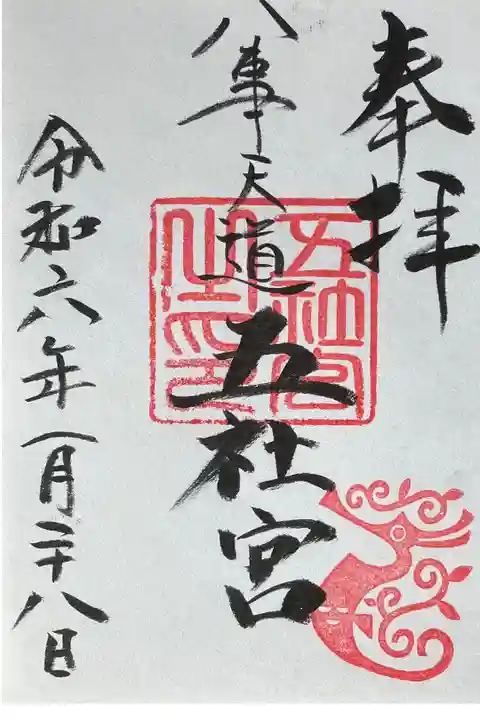 奉拝
八事天道
五社宮
五社宮之印
令和六年一月二十八日